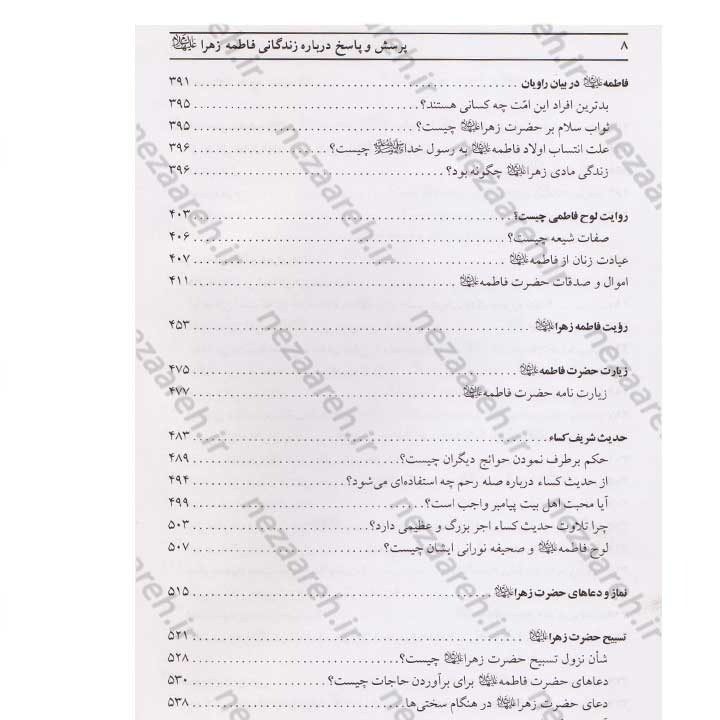 ۸ پرسش و پاسخ درباره زندگانی فاطمه زهرا علیهاالسلام
فاطمه علیهاالسلام در بیان راویان ۳۹۱
بدترین افراد این امّت چه کسانی هستند؟ ۳۹۵
ثواب سلام بر حضرت زهرا علیهاالسلام چیست؟ ۳۹۵
علت انتساب اولاد فاطمه علیهاالسلام به رسول خدا ﷺ چیست؟ ۳۹۶
زندگی مادی زهرا علیهاالسلام چگونه بود؟ ۳۹۶
روایت لوح فاطمی چیست؟ ۴۰۳
صفات شیعه چیست؟ ۴۰۶
عیادت زنان از فاطمه علیهاالسلام ۴۰۷
اموال و صدقات حضرت فاطمه علیهاالسلام ۴۱۱
رؤیت فاطمه زهرا علیهاالسلام ۴۵۳
زیارت حضرت فاطمه علیهاالسلام ۴۷۵
زیارت نامه حضرت فاطمه علیهاالسلام ۴۷۷
حدیث شریف کساء ۴۸۳
حکم برطرف نمودن حوائج دیگران چیست؟ ۴۸۹
از حدیث کساء درباره صله رحم چه استفاده‌ای می‌شود؟ ۴۹۴
آیا محبت اهل بیت پیامبر واجب است؟ ۴۹۹
چرا تلاوت حدیث کساء اجر بزرگ و عظیمی دارد؟ ۵۰۳
لوح فاطمه علیهاالسلام و صحیفه نورانی ایشان چیست؟ ۵۰۷
نماز و دعاهای حضرت زهرا علیهاالسلام ۵۱۵
تسبیح حضرت زهرا علیهاالسلام ۵۲۱
شأن نزول تسبیح حضرت زهرا علیهاالسلام چیست؟ ۵۲۸
دعاهای حضرت فاطمه علیهاالسلام برای برآوردن حاجات چیست؟ ۵۳۰
دعای حضرت زهرا علیهاالسلام در هنگام سختی‌ها ۵۳۸
nezaareh.ir